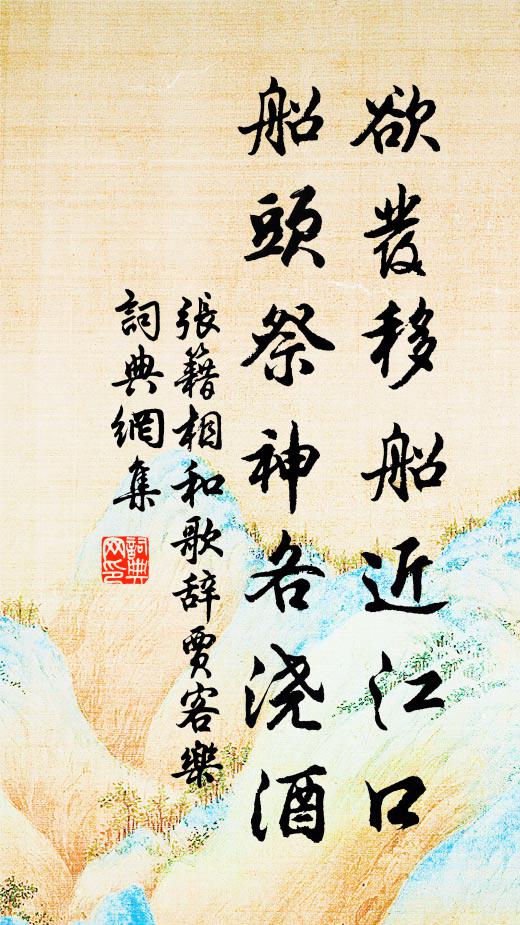 欲發移船近江口
船頭祭神各浇酒
張籍相和歌辞賈客樂
詞典網集
詞典
网印